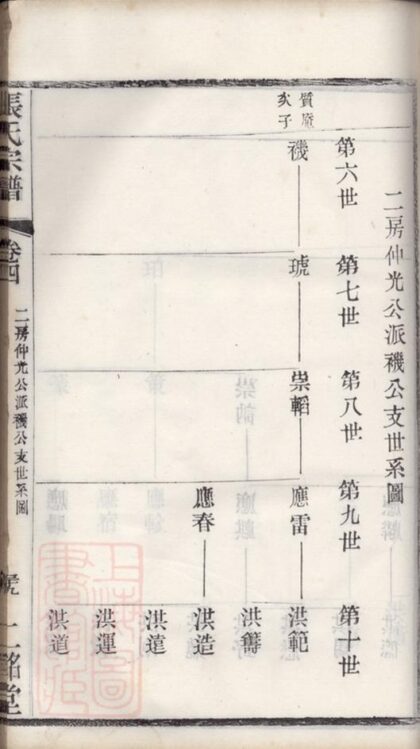 二房仲光公派禨公支世系圖
第六世
第七世
第八世
第九世
第十世
質廠
次子
禨
琥
崇韜
應雷
洪範
洪籌
應春
洪造
洪遠
洪運
洪道
張氏宗譜
卷四
二房仲光公派禨公支世系圖
二銘堂
上海圖
書館藏